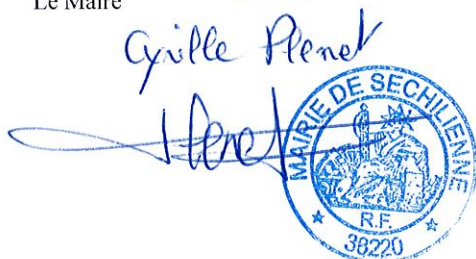 Le Maire
Cyrille Plenet
Plenet
MAIRIE DE SECHILIENNE
R.F.
38220